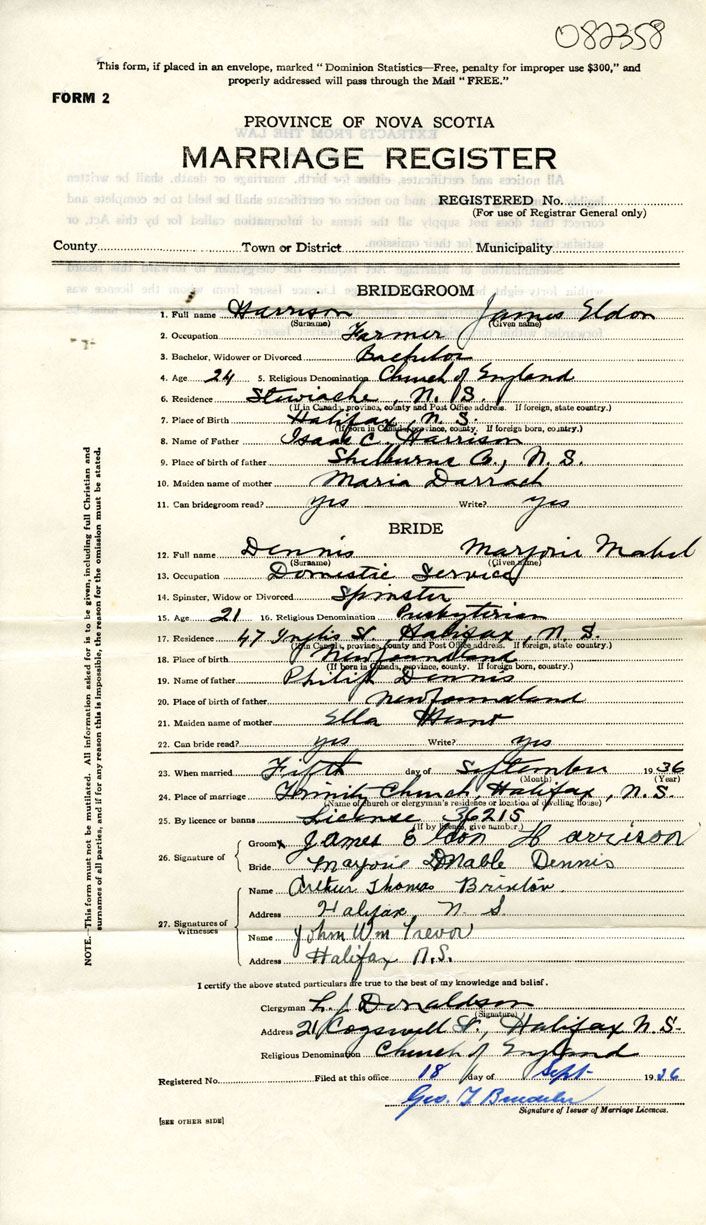 082358
This form, if placed in an envelope, marked "Dominion Statistics—Free, penalty for improper use $300," and
properly addressed will pass through the Mail "FREE."
FORM 2
PROVINCE OF NOVA SCOTIA
MARRIAGE REGISTER
REGISTERED No.
(For use of Registrar General only)
County Town or District Municipality
BRIDEGROOM
1. Full name Harrison James Eldon
(Surname) (Given name)
2. Occupation Farmer
3. Bachelor, Widower or Divorced Bachelor
4. Age 24 5. Religious Denomination Church of England
6. Residence Stewiacke, N. S.
(If in Canada, province, county and Post Office address. If foreign, state country.)
7. Place of Birth Halifax, N. S.
(If born in Canada, province, county. If foreign born, country.)
8. Name of Father Isaac C. Harrison
9. Place of birth of father Shelburne Co., N. S.
10. Maiden name of mother Maria Darrach
11. Can bridegroom read? yes Write? yes
BRIDE
12. Full name Dennis Marjorie Mabel
(Surname) (Given name)
13. Occupation Domestic Service
14. Spinster, Widow or Divorced Spinster
15. Age 21 16. Religious Denomination Presbyterian
17. Residence 47 Inglis St, Halifax, N. S.
(If in Canada, province, county and Post Office address. If foreign, state country.)
18. Place of birth Newfoundland
(If born in Canada, province, county. If foreign born, country.)
19. Name of father Philip Dennis
20. Place of birth of father Newfoundland
21. Maiden name of mother Ella
22. Can bride read? yes Write? yes
23. When married Fifth day of September 1936
(Month) (Year)
24. Place of marriage Trinity Church, Halifax, N. S.
(Name of church or clergyman's residence or location of dwelling house)
25. By licence or banns License 36215
(If by licence, give number.)
26. Signature of
Groom James Eldon Harrison
Bride Marjorie Mable Dennis
27. Signatures of Witnesses
Name Arthur Thomas Brinton
Address Halifax, N. S.
Name John Wm Trevor
Address Halifax N.S.
I certify the above stated particulars are true to the best of my knowledge and belief.
Clergyman L. J. Donaldson
(Signature)
Address 21 Cogswell St., Halifax N. S.
Religious Denomination Church of England
Registered No. Filed at this office 18 day of Sept 1936
Geo. T
Signature of Issuer of Marriage Licences.
[SEE OTHER SIDE]
NOTE.—This form must not be mutilated. All information asked for is to be given, including full Christian and
surnames of all parties, and if for any reason this is impossible, the reason for the omission must be stated.